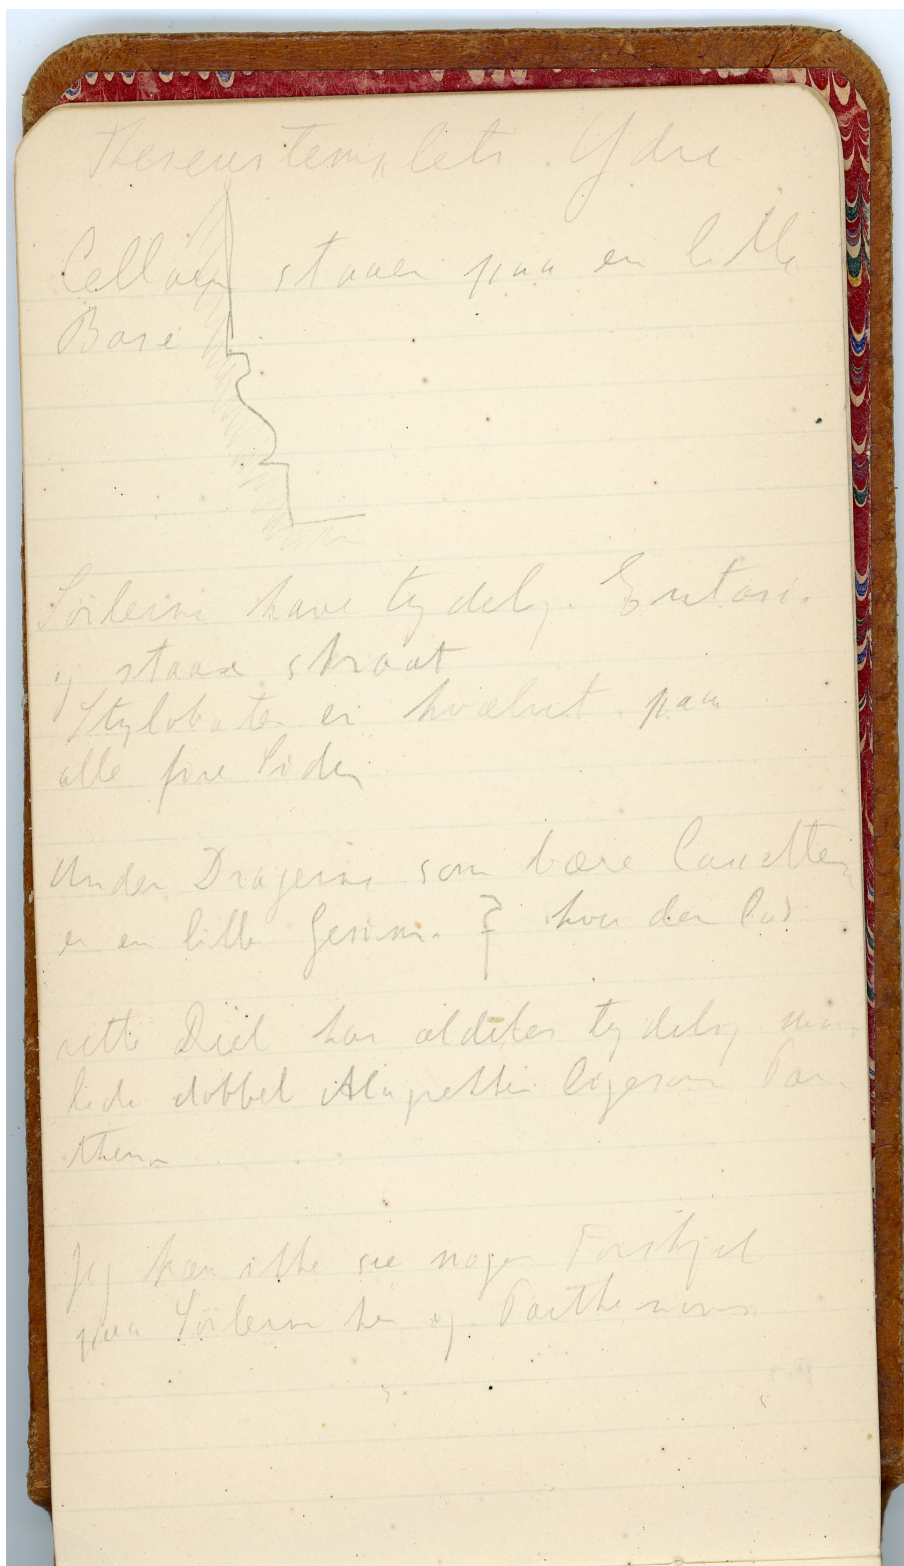 Theseustemplets Ydre
Cellaen staaer paa en lille
Base
Söilerne have tydelig Entasis
og staae skraat
Stylobaten er hvælvet paa
alle fire Sider
Under Dragerne som bære Cassetten
er en lille Gesims hvor den
Deel har aldeles tydelig
dobbel ligesom Par
thenon
Jeg kan ikke see nogen Forskjel
paa Söilerne her og Parthenons